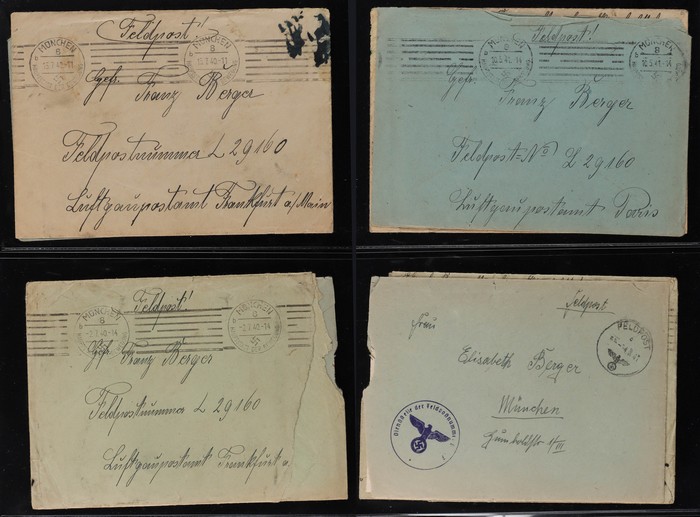 Feldpost!
MÜNCHEN
8
MÜNCHEN
8
Gefr. Franz Berger
Feldpostnummer L 29160
Luftgaupostamt Frankfurt a/Main
Feldpost!
MÜNCHEN
8
Gefr. Franz Berger
Feldpost=No L 29160
Luftgaupostamt Paris
Feldpost!
MÜNCHEN
8
MÜNCHEN
8
Gefr. Franz Berger
Feldpostnummer L 29160
Luftgaupostamt Frankfurt a.
Feldpost
FELDPOST
Frau
Elisabeth Berger
München
Dienststelle der Feldpostnummer